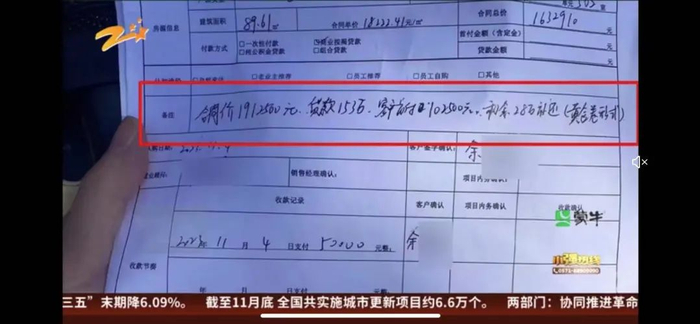 市元 303 室
房源信息 建筑面积 89.61㎡ 合同单价 18222.41元/㎡ 合同总价 1632910
付款方式 □一次性付款 ☑商业按揭贷款 首付金额（含定金）
□纯公积金贷款 □组合贷款 贷款金额
□业主推荐 □员工推荐 □员工自购 □其他
备注 合同价1912560元，贷款153万，客户首付 102500元，剩余28万返还（黄金卷形式）
客户签字确认： 余
销售经理确认： 项目内务确认：
收款记录 客户确认 项目内务确认 收款确认
蒙牛
收款节点 2023年 11 月 4 日支付 50000 元整； 余
年 月 日支付 元整；
小强热线
0571-88909090
三五”末期降6.09%。 截至11月底 全国共实施城市更新项目约6.6万个。 两部门：协同推进革命